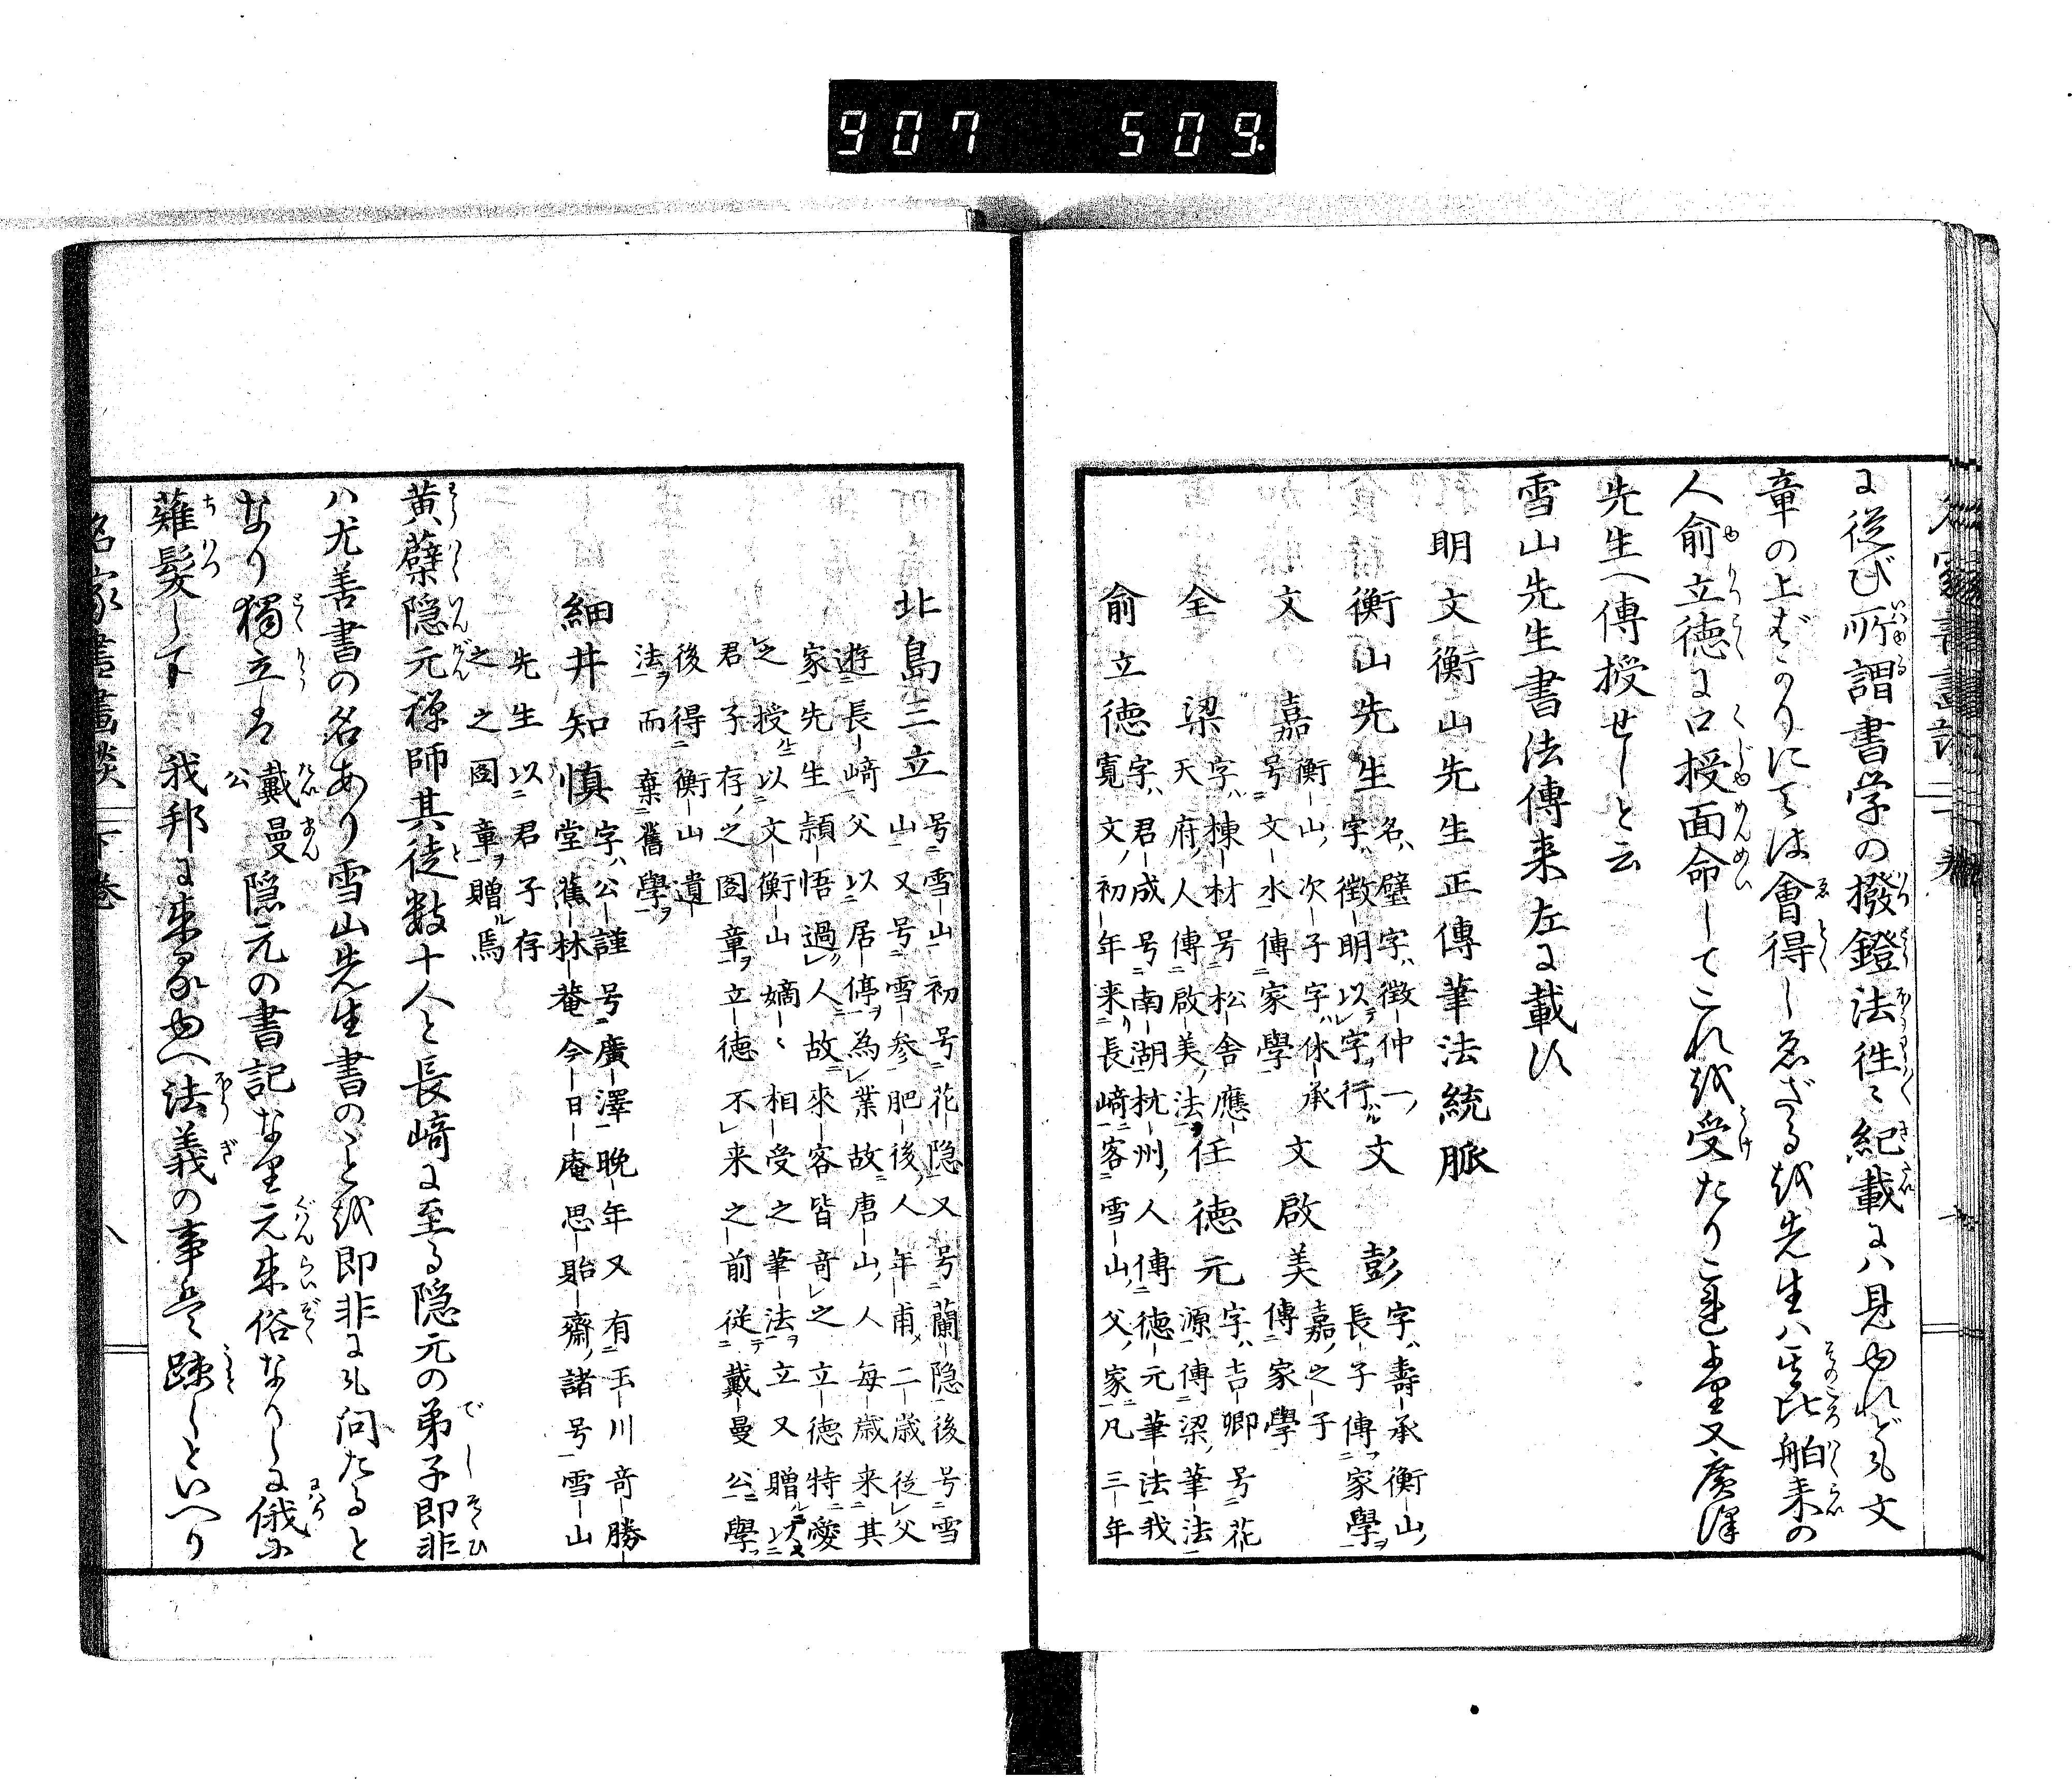 907 509.
に従び所謂書学の撥鐙法徃〻紀載にハ見ゆれども文
章の上ばかりにては會得しゑざるを先生ハ其比舶来の
人俞立徳に口授面命してこれを受たりこれより又廣澤
先生へ傳授せしと云
雪山先生書法傳来左に載す
明文衡山先生正傳筆法統脈
衡山先生 名璧字ハ徴仲一
字ハ徴明以字行
文彭 字ハ壽承衡山
長子傳家學
文嘉 衡山次子字ハ休承
号文水傳家學
文啟美 嘉之子
傳家學
仝梁 字ハ棟材号松舎應
天府人傳啟美法
任徳元 字ハ吉卿号花
源傳梁筆法
俞立徳 字ハ君成号南湖杭州人傳徳元筆法我
寛文初年来長﨑客雪山父家凡三年
北島三立 号雪山初号花隐又号蘭隐後号雪
山又号雪参肥後人年甫二歳従父
遊長﨑父以居停為業故唐山人毎歳来其
家先生頴悟過人故來客皆竒之立徳特愛
之授以文衡山嫡〻相受之筆法立又贈以
君子存之圖章立徳不来之前従戴曼公學
後得衡山遺
法而棄舊學
細井知慎 字ハ公謹号廣澤晩年又有玉川竒勝
堂蕉林菴今日庵思貽齋諸号雪山
先生以君子存
之之圖章贈焉
黄蘗隐元禅師其徒数十人と長﨑に至る隐元の弟子即非
ハ尤善書の名あり雪山先生書のことを即非にも問たると
なり獨立は戴曼公隐元の書記なり元来俗なりしに俄に
薙髪して我邦に来るゆへ法義の事は踈しといへり
名家書畫談 下巻 八